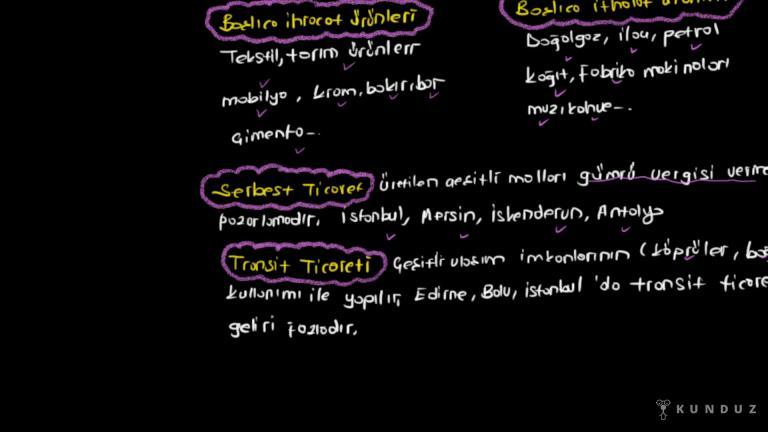 Başlıca ihracat ürünleri
Tekstil, tarım ürünleri
mobilya, krom, bakır, bor
Çimento-..
Başlıca ithalat
Doğalgaz, ilaç, petrol
Kağıt, Fabrika makinaları
muz, kahve-..
Serbest Ticaret üretilen çeşitli malları gümrü vergisi verme
pazarlamadır. İstanbul, Mersin, İskenderun, Antalya
Transit Ticareti Çeşitli ulaşım imkanlarının (köprüler, boğ
kullanımı ile yapılır, Edirne, Bolu, istanbul 'da transit ticare
geliri fazladır.
KUNDUZ